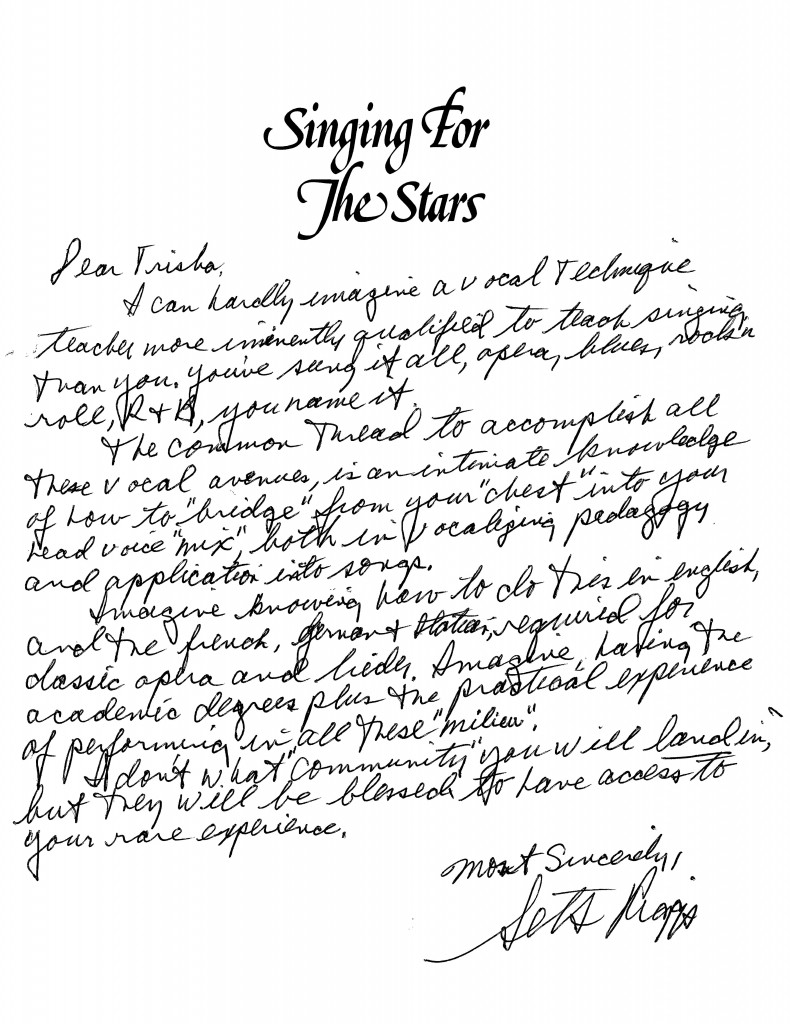 Singing For
The Stars
Dear Trisha,
I can hardly imagine a vocal technique
teacher more iminently qualified to teach singing
than you. You've sung it all, opera, blues, rock 'n
roll, R+B, you name it.
The common thread to accomplish all
these vocal avenues, is an intimate knowledge
of how to "bridge" from your "chest" into your
head voice "mix", both in vocalizing pedagogy
and application into songs.
Imagine knowing how to do this in english,
and the french, german + Italian, required for
classic opera and lieder. Imagine, having the
academic degrees plus the practical experience
of performing in all these "milieu".
I don't what "community" you will land in,
but they will be blessed to have access to
your rare experience.
Most Sincerely,
Seth Riggs